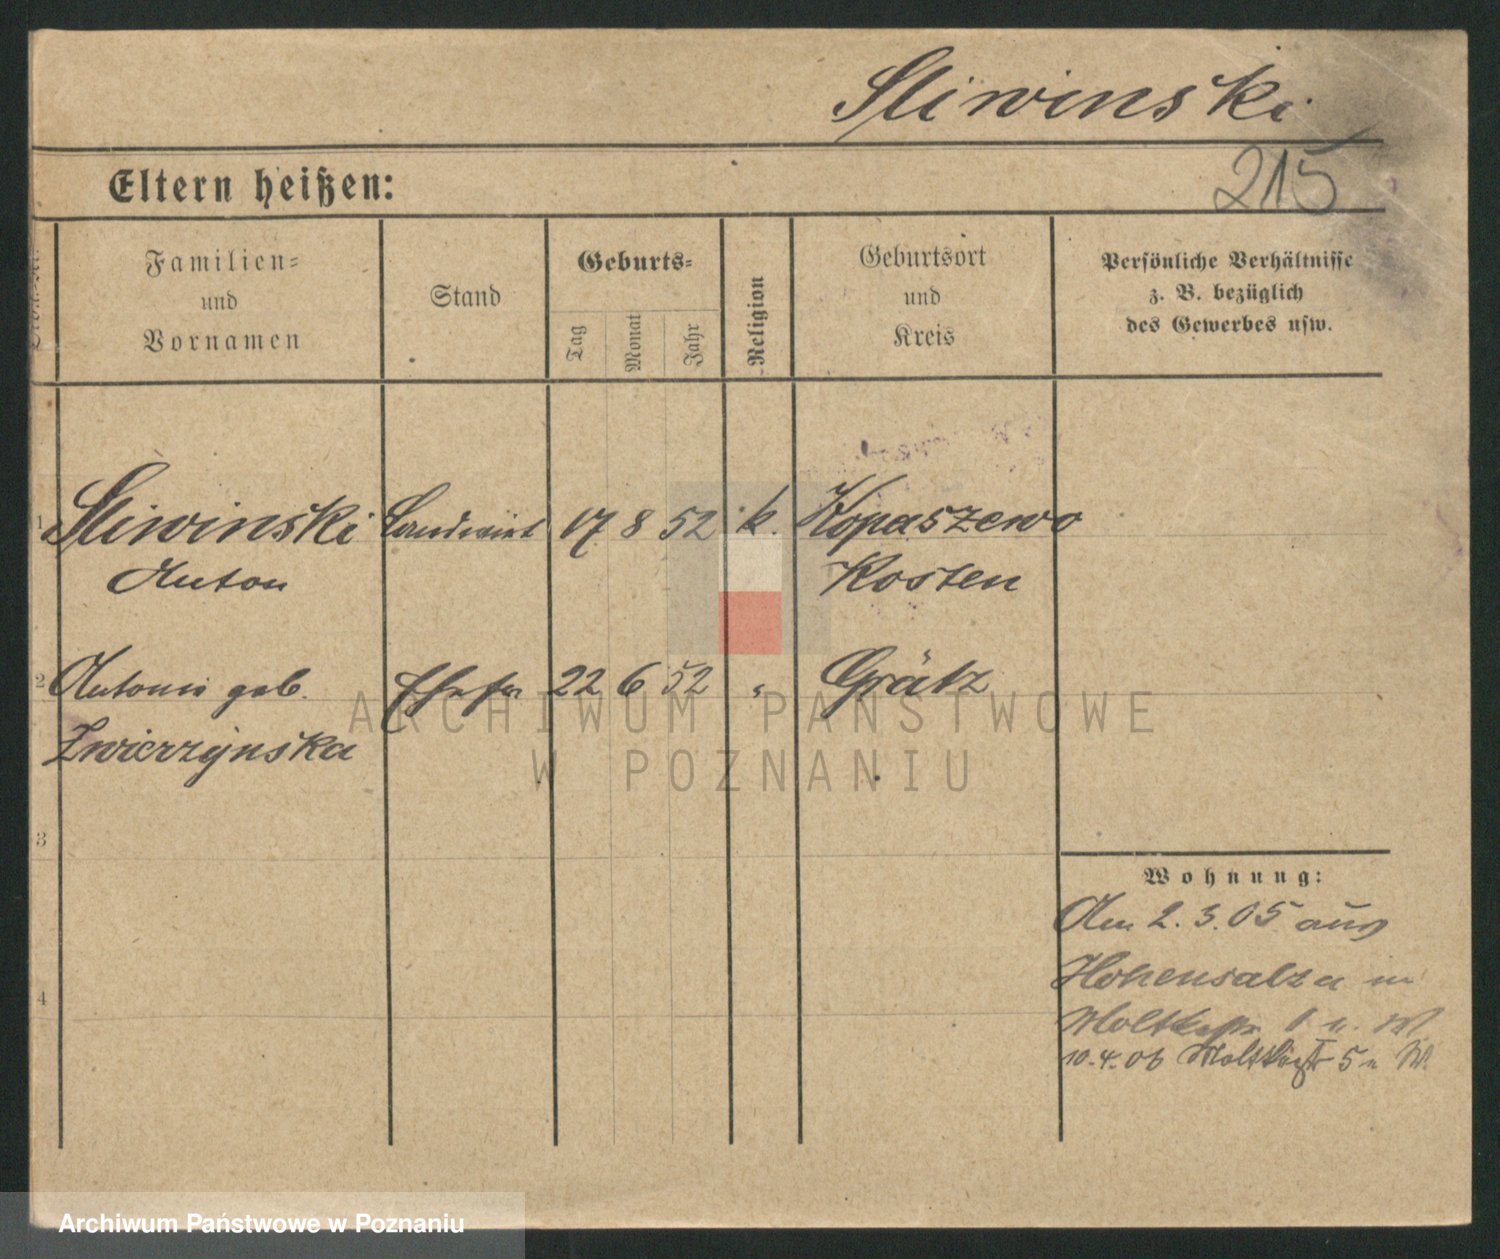 Sliwinski
215
Eltern heißen:
Familien=
und
Vornamen
Stand
Geburts=
Tag
Monat
Jahr
Religion
Geburtsort
und
Kreis
Persönliche Verhältnisse
z. B. bezüglich
des Gewerbes usw.
1 Sliwinski Landwirt 17 8 52 k. Kopaszewo
Anton Kosten
2 Antonie geb. Ehefr 22 6 52 " Grätz
Zwierzynska
3
4
Wohnung:
Am 2.3.05 aus
Hohensalza in
Moltkestr.
10.4.06 Moltkestr 5
ARCHIWUM PAŃSTWOWE
W POZNANIU
Archiwum Państwowe w Poznaniu